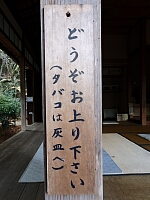 どうぞお上り下さい
(タバコは灰皿へ)